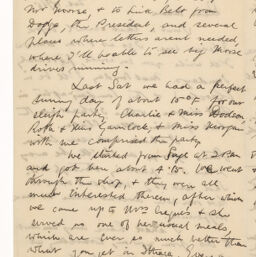 Mr Morse, & to Lisa Belt from
Dodge, the President, and several
places where letters arent needed
where I'll be able to see big Morse
drives running.
Last Sat we had a perfect
sunny day of about 10°F. for our
sleigh party. Charlie & Miss
Roth & Miss & Miss Morgan
with me comprised the party.
We started from Sage at 2 P.M.
and got here about 4 15. We went
through the shop, & they were all
interested therein, after which
we came up to Mrs & she
served us one of her usual meals,
which are ever so much better than
what you get in Ithaca